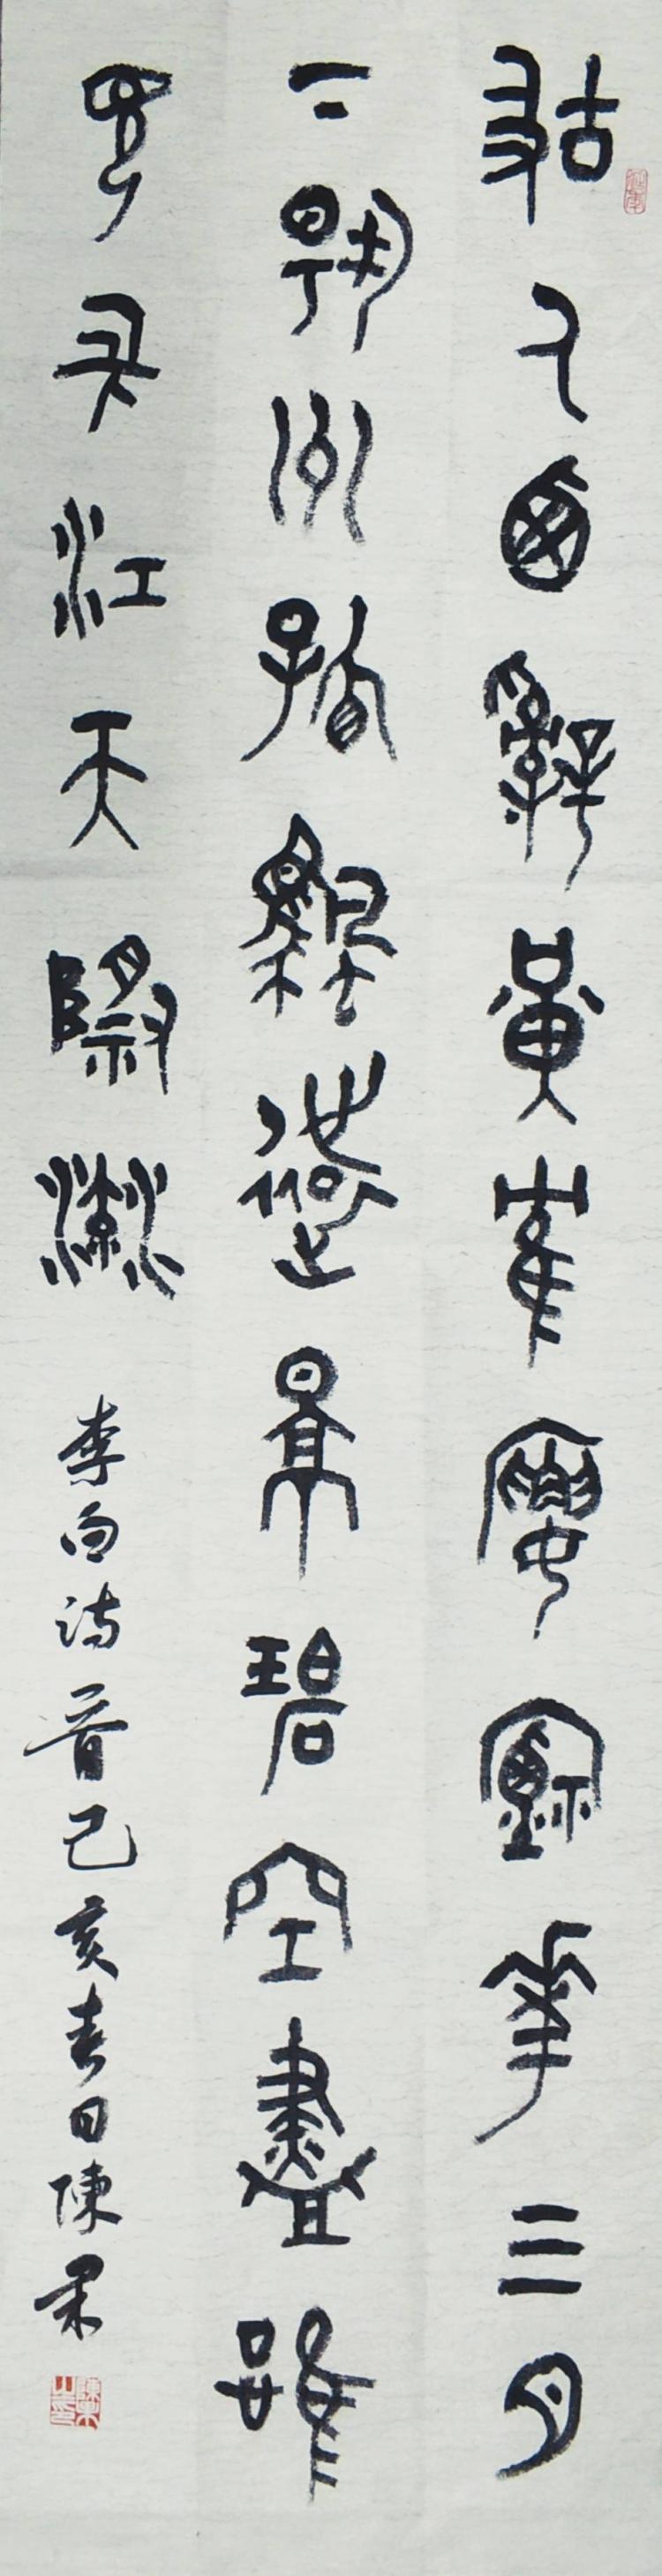 故人西辭黃鶴樓煙花三月
下揚州孤帆遠景碧空盡唯
見長江天際流 李白詩一首己亥春日陳